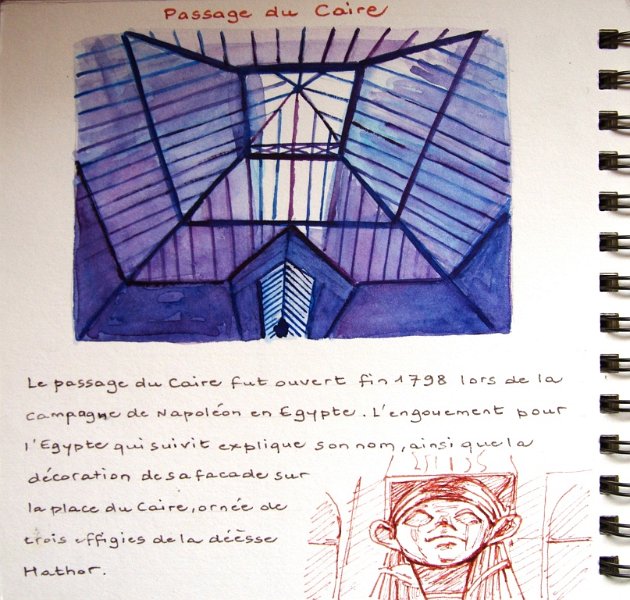 Passage du Caire
Le passage du Caire fut ouvert fin 1798 lors de la
campagne de Napoléon en Egypte. L'engouement pour
l'Egypte qui suivit explique son nom, ainsi que la
décoration de sa facade sur
la place du Caire, ornée de
trois effigies de la déèsse
Hathor.